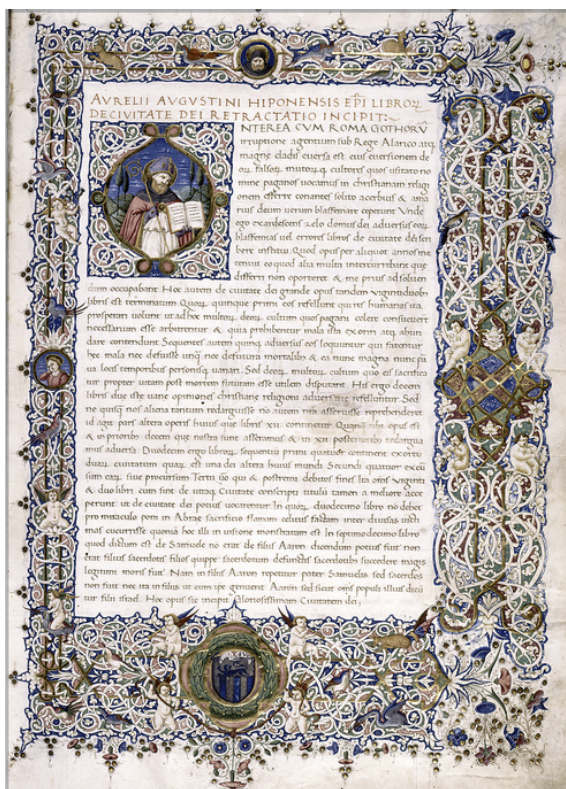 AVRELII AVGVSTINI HIPONENSIS EPI LIBROꝜ
DECIVITATE DEI RETRACTATIO INCIPIT:
NTEREA CVM ROMA GOTHORV
irruptione agentium sub Rege Alarico atq
magne cladis euersa est eius euersionem de
oꝝ falsoꝝ multoꝝ cultores quos usitato no
mine paganos uocamus in christianam religi
onem efferre conantes solito acerbius & ama
rius deum uerum blasfemare ceperunt Vnde
ego exardescens zelo domus dei aduersus eoꝝ
blasfemias uel errores libros de ciuitate dei scri
bere institui. Quod opus per aliquot annos me
tenuit eo quod alia multa intercurrebant que
differri non oporteret & me prius ad soluen
dum occupabant. Hoc autem de ciuitate dei grande opus tandem uigintiduobus
libris est terminatum Quoꝝ quinque primi eos refellunt qui res humanas ita
prosperari uolunt ut ad hoc multoꝝ deoꝝ cultum quos pagani colere consueuert
necessarium esse arbitrentur & quia prohibentur mala ista exoriri atq abun
dare contendunt Sequentes autem quinq aduersus eos loquuntur qui fatentur
hec mala nec defuisse unq nec defutura mortalibus & ea nunc magna nunc pa
ua locis temporibus personisq uariari. Sed deoꝝ multoꝝ cultum quo eis sacrifica
tur propter uitam post mortem futuram esse utilem disputant. His ergo decem
libris due iste uane opiniones christiane religioni aduersarie refelluntur. Sed
ne quisq nos aliena tantum redarguisse no autem nra asseruisse reprehenderet
id agit pars altera operis huius que libris xii. continetur Quanq ubi opus est
& in prioribus decem que nostra sunt asseramus & in xii posterioribus redargua
mus aduersa Duodecim ergo libroꝝ sequentium primi quatuor continent exortu
duaꝝ ciuitatum quaꝝ est una dei altera huius mundi Secundi quatuor excu
sum eaꝝ siue procursum Tertii uo qui & postremi debitos fines Ita oms Viginti
& duo libri cum sint de utraq Ciuitate conscripti titulum tamen a meliore acce
perunt ut de ciuitate dei potius uocarentur In quoꝝ duodecimo libro no debet
pro miraculo poni in Abrae sacrificio flamam celitus factam inter diuisas uicti
mas cucurrisse quonia hoc illi in uisione monstratum est In septimo decimo libro
quod dictum est de Samuele no erat de filiis Aaron dicendum potius fuit non
erat filius sacerdotis filios quippe sacerdotum defunctis sacerdotibus succedere magis
legitimi moris fuit Nam in filiis Aaron reperitur pater Samuelis sed sacerdos
non fuit nec ita in filiis ut eum ipe genuerit Aaron sed sicut oms populi illius dicu
tur filii israel. Hoc opus sic incipit Gloriosissimam Ciuitatem dei;